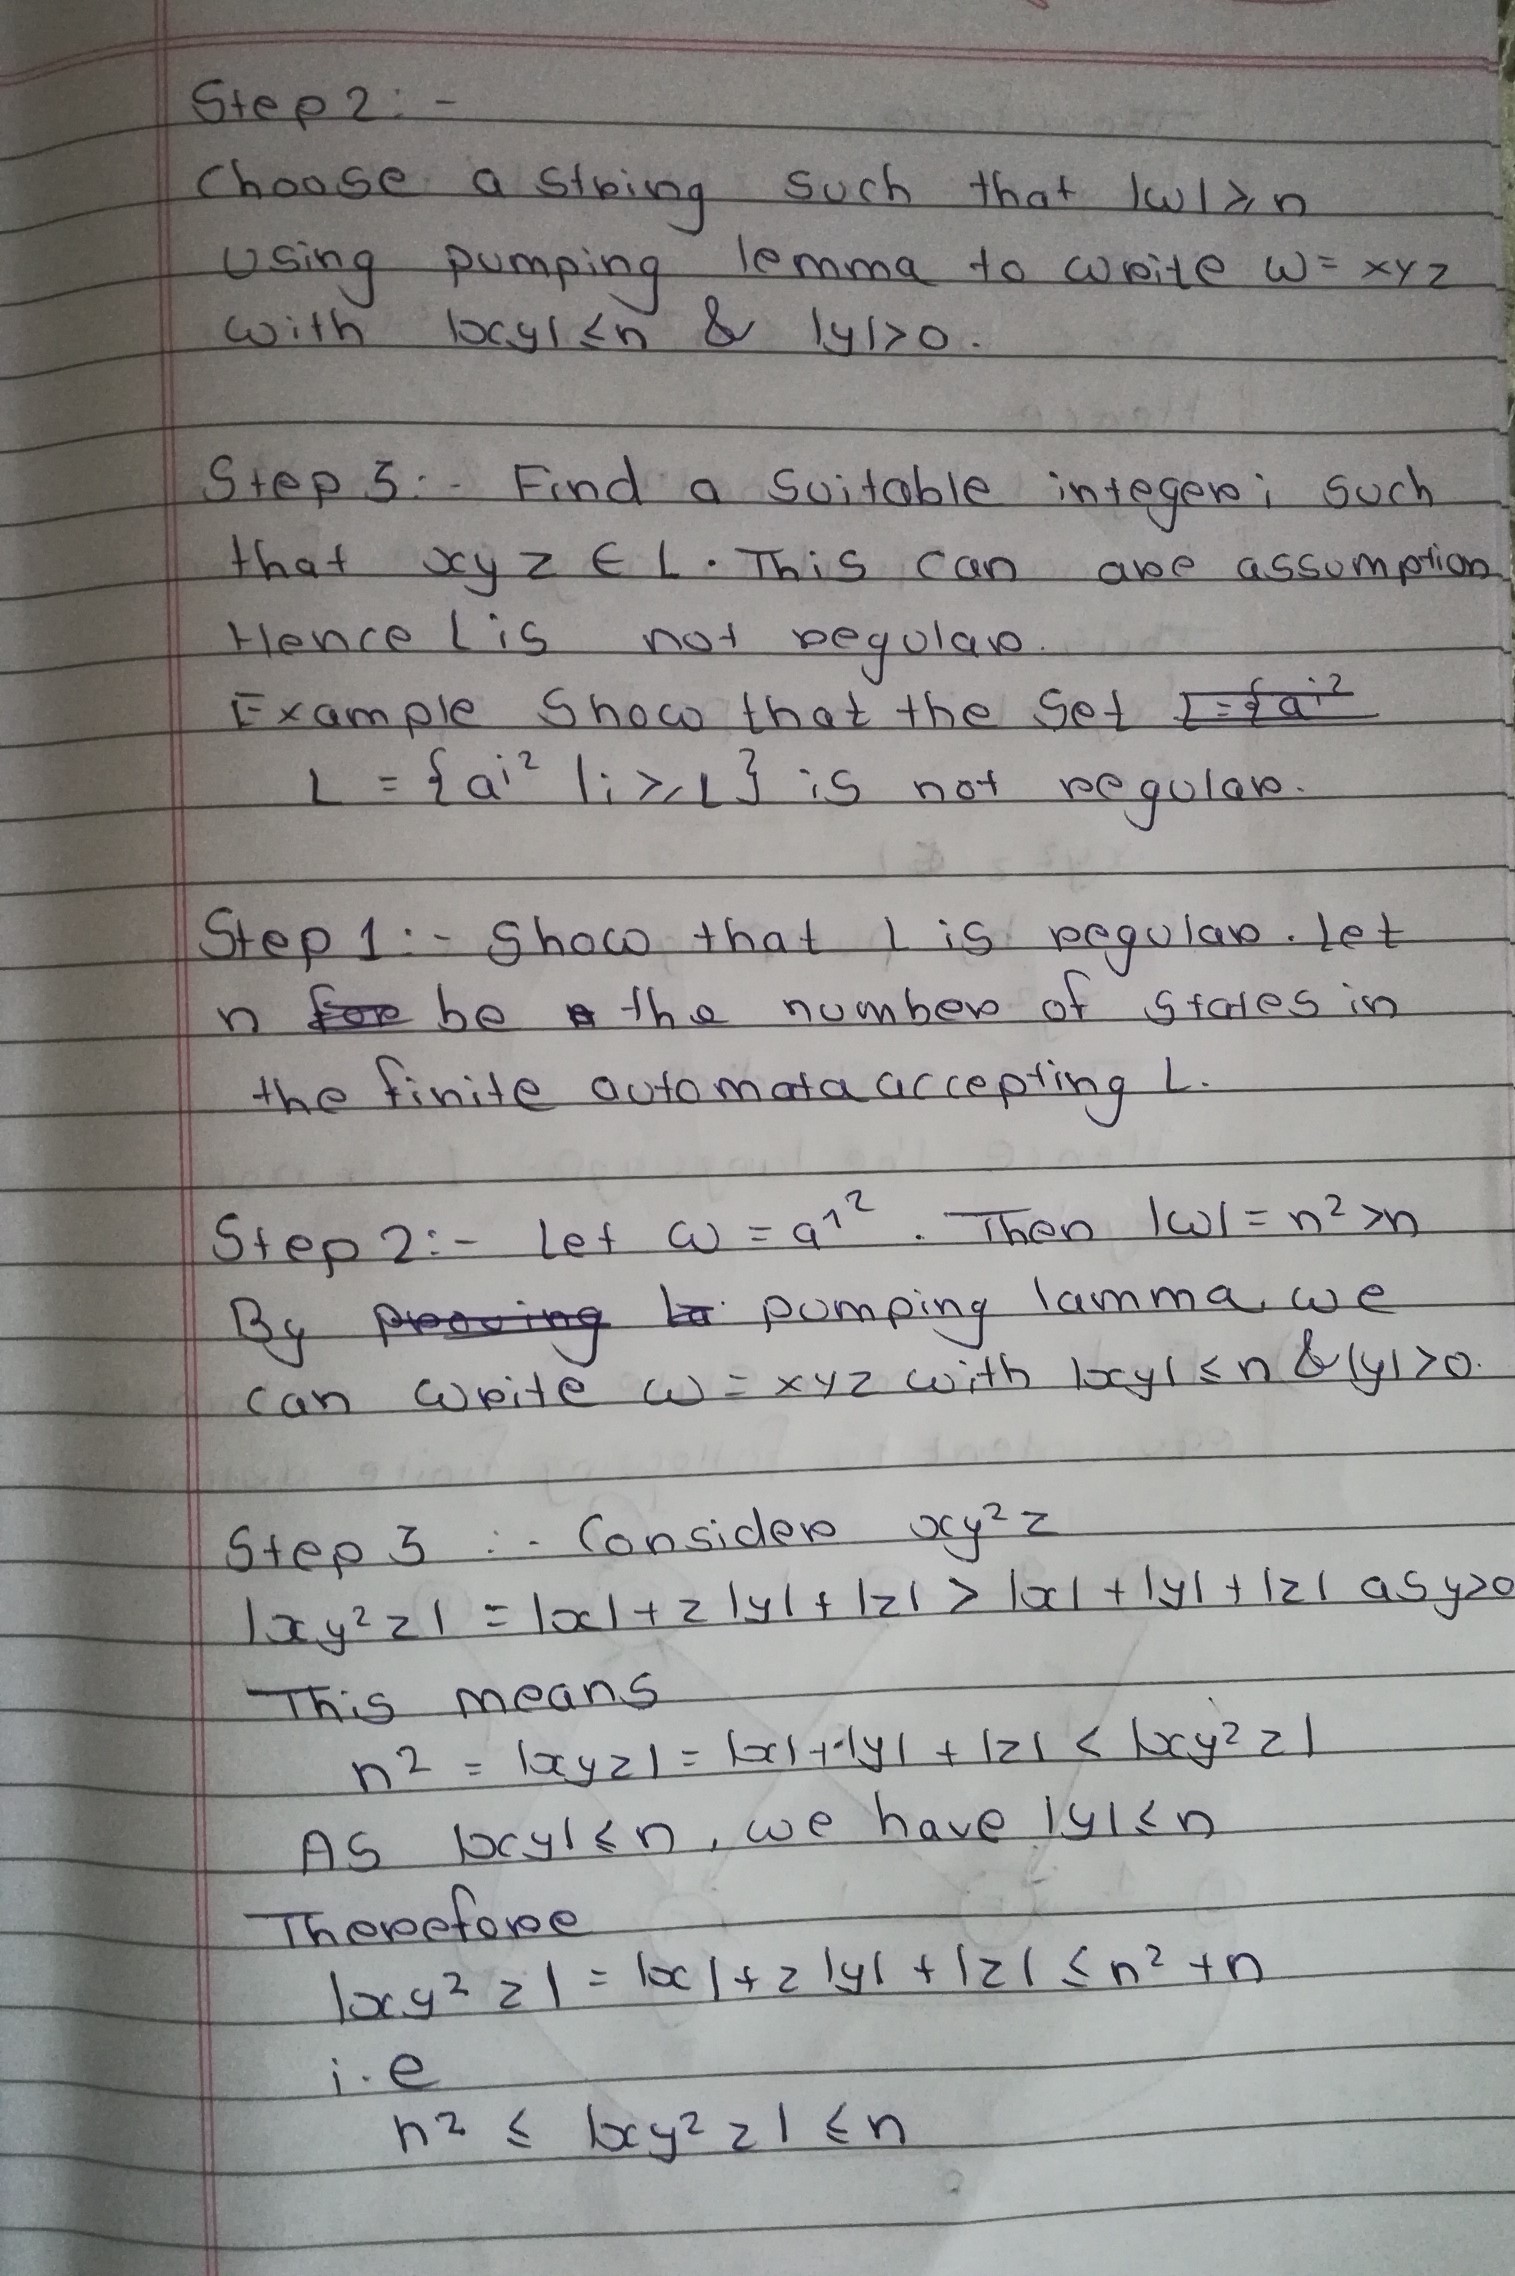 Step 2: -
Choose a string such that |w| ⩾ n
using pumping lemma to write w = xyz
with |xy| ≤ n & |y| > 0.
Step 3: - Find a suitable integer i such
that xyz ∈ L. This can are assumption
Hence L is not regular.
Example Show that the Set L = {a^i²
L = {a^i² | i ⩾ 1} is not regular.
Step 1: - Show that L is regular. Let
n for be a the number of states in
the finite automata accepting L.
Step 2: - Let w = a^1². Then |w| = n² > n
By prooving la pumping lamma, we
can write w = xyz with |xy| ≤ n & |y| > 0.
Step 3 : - Consider xy²z
|xy²z| = |x| + 2|y| + |z| > |x| + |y| + |z| as y>0
This means
n² = |xyz| = |x| + |y| + |z| < |xy²z|
As |xy| ≤ n, we have |y| ≤ n
Therefore
|xy²z| = |x| + 2|y| + |z| ≤ n² + n
i.e
n² ≤ |xy²z| ≤ n